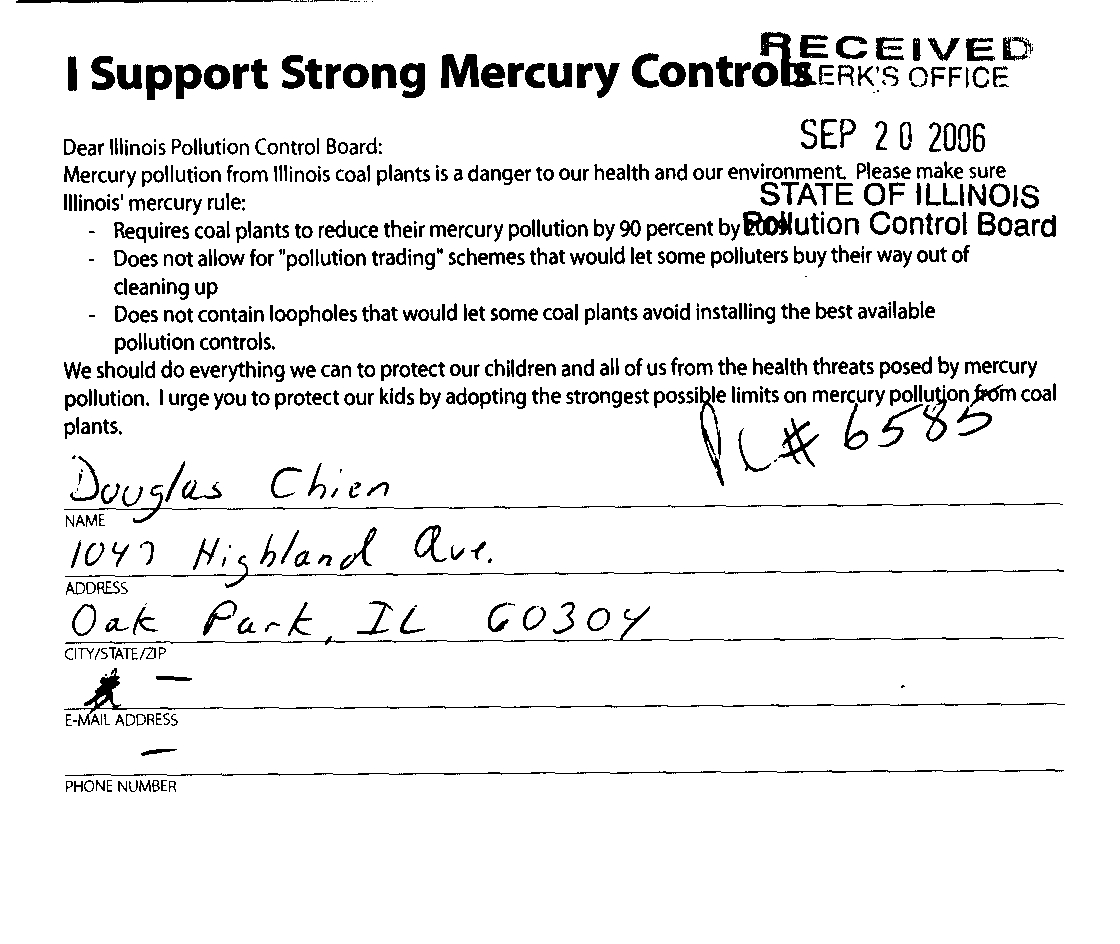 I Support Strong Mercury Controls
RECEIVED
CLERK'S OFFICE
SEP 20 2006
STATE OF ILLINOIS
Pollution Control Board
Dear Illinois Pollution Control Board:
Mercury pollution from Illinois coal plants is a danger to our health and our environment. Please make sure
Illinois' mercury rule:
- Requires coal plants to reduce their mercury pollution by 90 percent by
- Does not allow for "pollution trading" schemes that would let some polluters buy their way out of
cleaning up
- Does not contain loopholes that would let some coal plants avoid installing the best available
pollution controls.
We should do everything we can to protect our children and all of us from the health threats posed by mercury
pollution. I urge you to protect our kids by adopting the strongest possible limits on mercury pollution from coal
plants.
PC # 6585
Douglas Chien
NAME
1047 Highland Ave.
ADDRESS
Oak Park, IL 60304
CITY/STATE/ZIP
—
E-MAIL ADDRESS
—
PHONE NUMBER